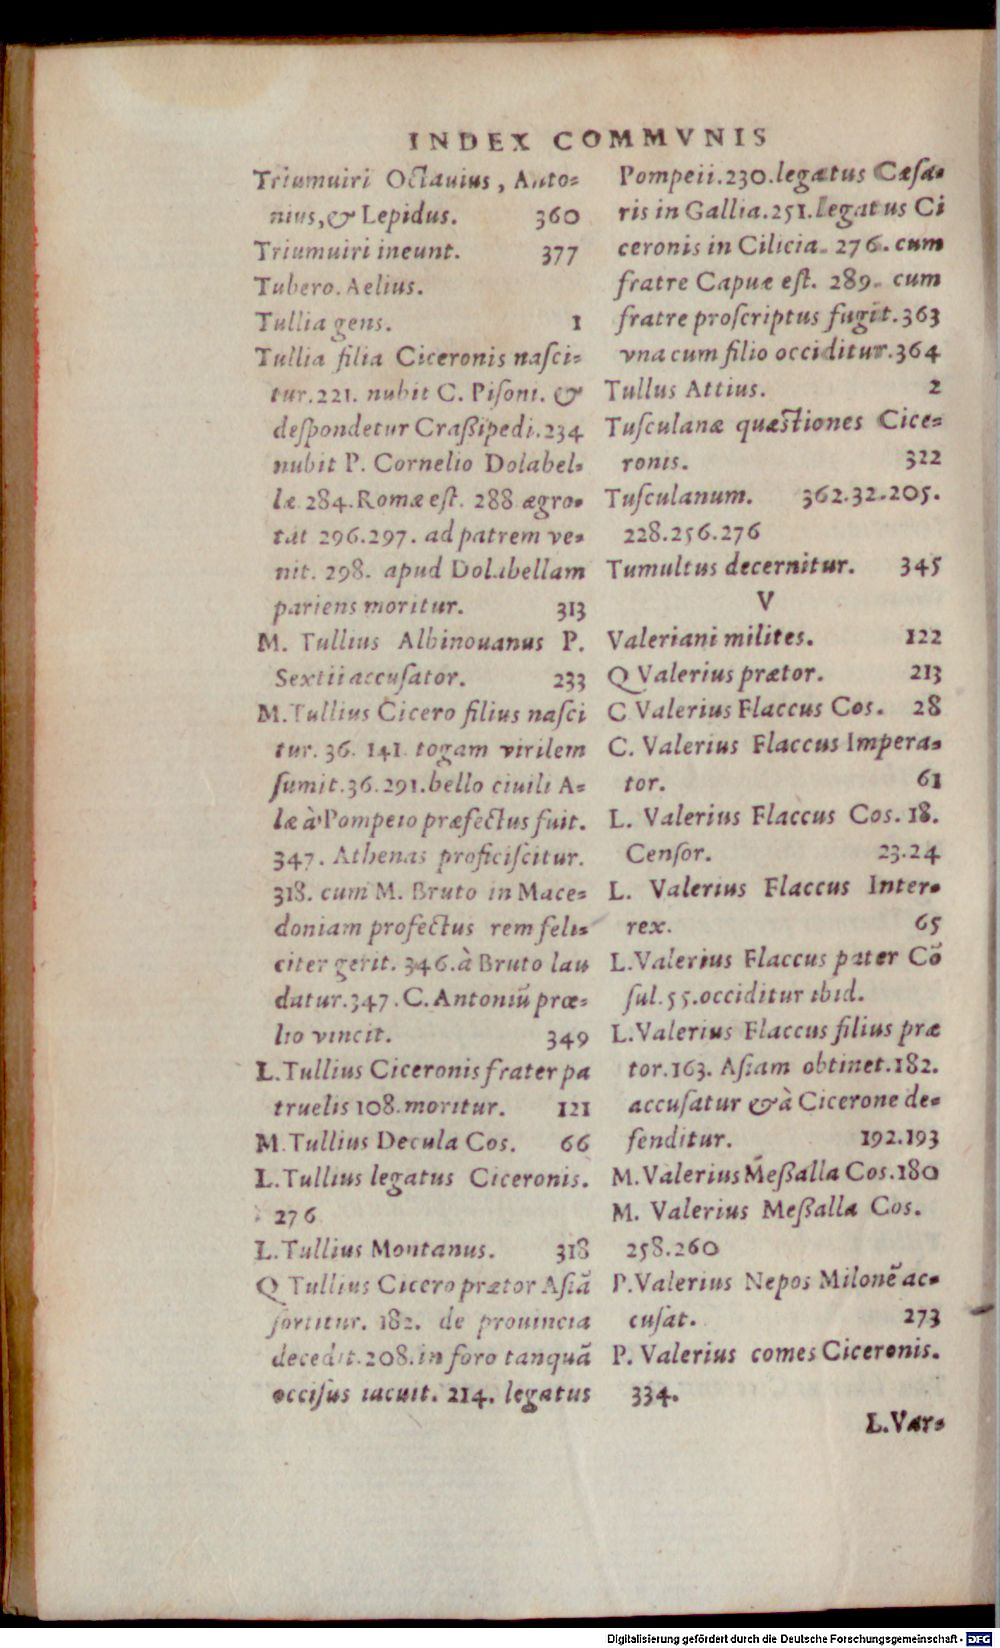 INDEX COMMVNIS
Triumuiri Octauius, Anto-
nius, & Lepidus. 360
Triumuiri ineunt. 377
Tubero. Aelius.
Tullia gens. 1
Tullia filia Ciceronis nasci-
tur. 221. nubit C. Pisoni. &
despondetur Craßipedi. 234
nubit P. Cornelio Dolabel-
læ 284. Romæ est. 288 ægro-
tat 296.297. ad patrem ve-
nit. 298. apud Dolabellam
pariens moritur. 313
M. Tullius Albinouanus P.
Sextii accusator. 233
M. Tullius Cicero filius nasci
tur. 36. 141. togam virilem
sumit. 36.291. bello ciuili A-
læ à Pompeio præfectus fuit.
347. Athenas proficiscitur.
318. cum M. Bruto in Mace-
doniam profectus rem feli-
citer gerit. 346. à Bruto lau
datur. 347. C. Antoniũ præ-
lio vincit. 349
L. Tullius Ciceronis frater pa
truelis 108. moritur. 121
M. Tullius Decula Cos. 66
L. Tullius legatus Ciceronis.
276
L. Tullius Montanus. 318
Q Tullius Cicero prætor Asiã
sortitur. 182. de prouincia
decedit. 208. in foro tanquã
occisus iacuit. 214. legatus
Pompeii. 230. legatus Cæsa-
ris in Gallia. 251. legatus Ci
ceronis in Cilicia. 276. cum
fratre Capuæ est. 289. cum
fratre proscriptus fugit. 363
vna cum filio occiditur. 364
Tullus Attius. 2
Tusculanæ quæstiones Cice-
ronis. 322
Tusculanum. 362.32.205.
228.256.276
Tumultus decernitur. 345
V
Valeriani milites. 122
Q Valerius prætor. 213
C Valerius Flaccus Cos. 28
C. Valerius Flaccus Impera-
tor. 61
L. Valerius Flaccus Cos. 18.
Censor. 23.24
L. Valerius Flaccus Inter-
rex. 65
L. Valerius Flaccus pater Cõ
sul. 55. occiditur ibid.
L. Valerius Flaccus filius præ
tor. 163. Asiam obtinet. 182.
accusatur & à Cicerone de-
fenditur. 192.193
M. Valerius Meßalla Cos. 180
M. Valerius Meßalla Cos.
258.260
P. Valerius Nepos Milonẽ ac-
cusat. 273
P. Valerius comes Ciceronis.
334.
L. Var-
Digitalisierung gefördert durch die Deutsche Forschungsgemeinschaft - DFG